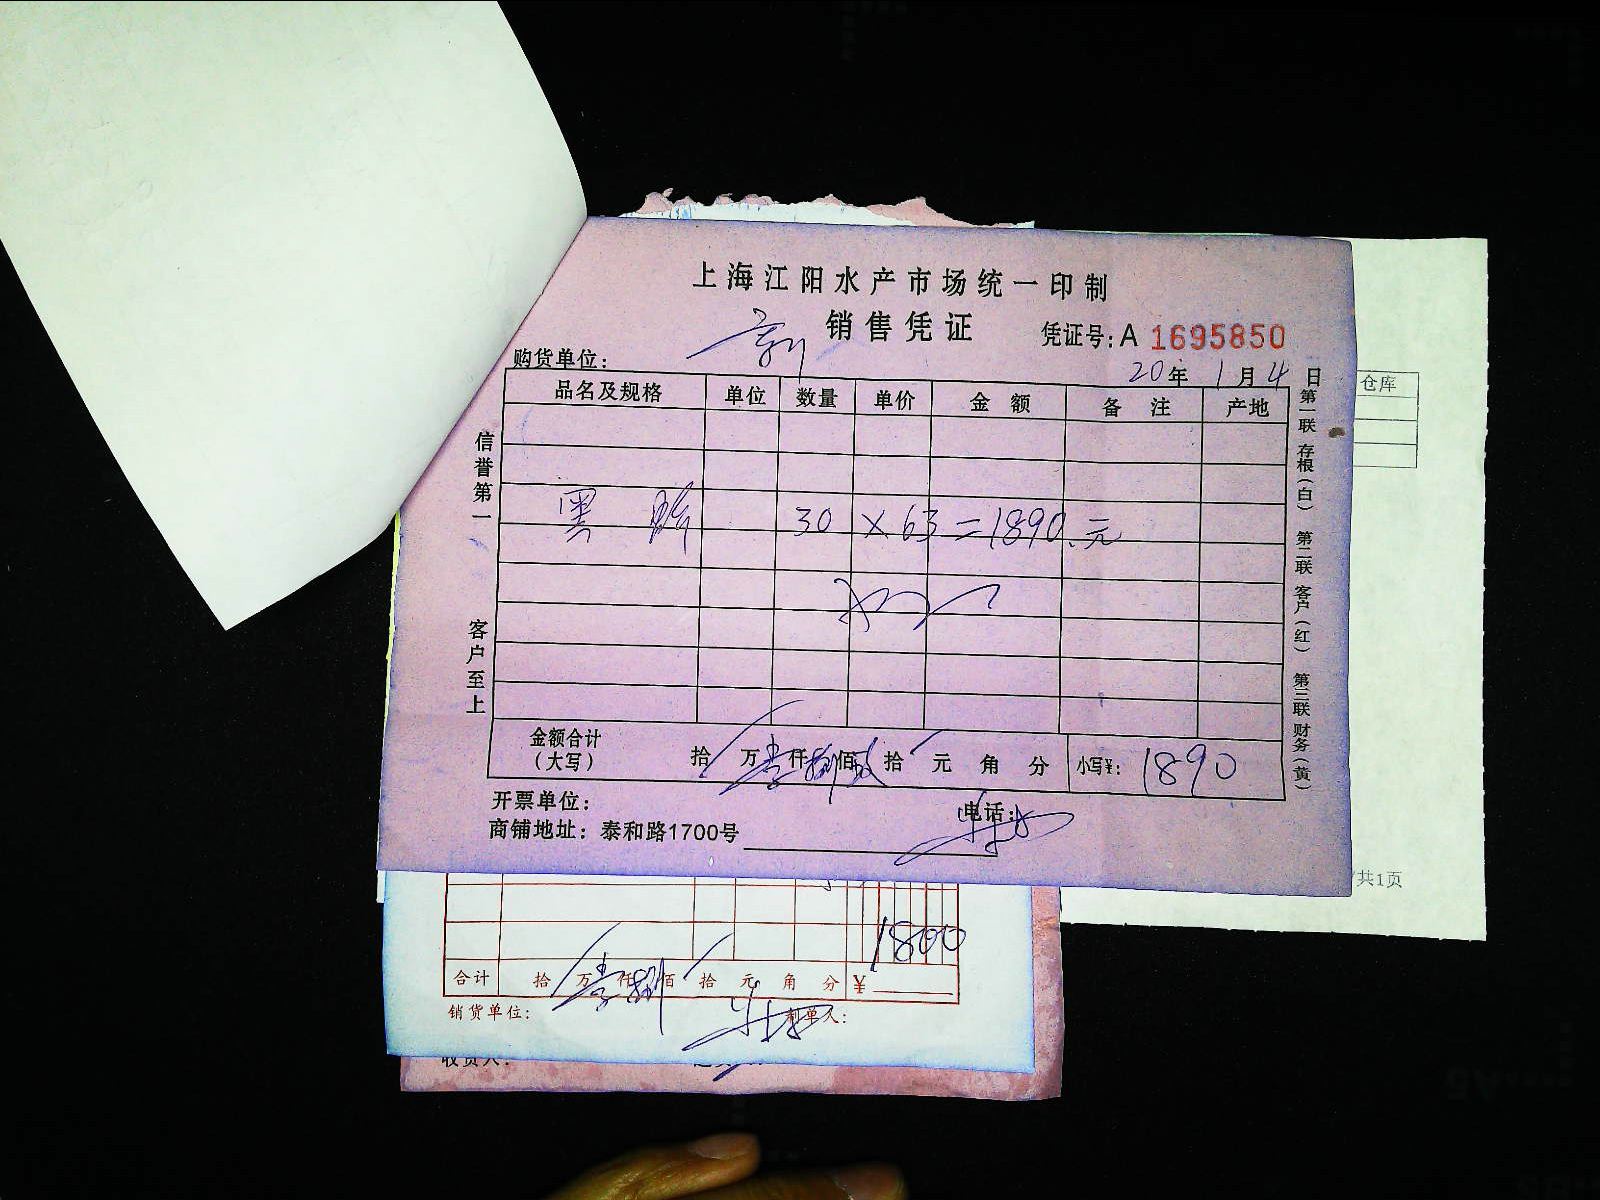 上海江阳水产市场统一印制
销售凭证
凭证号:A 1695850
购货单位:
20年1月4日
品名及规格 单位 数量 单价 金额 备注 产地
30 × 63 = 1890.元
金额合计(大写) 拾 万壹仟捌佰玖拾 元 角 分 小写¥: 1890
开票单位: 电话:
商铺地址: 泰和路1700号
信誉第一
客户至上
第一联 存根(白) 第二联 客户(红) 第三联 财务(黄)
仓库
/共1页
1800
合计 拾 万壹仟捌佰 拾 元 角 分 ¥
销货单位: 制单人:
收货人: